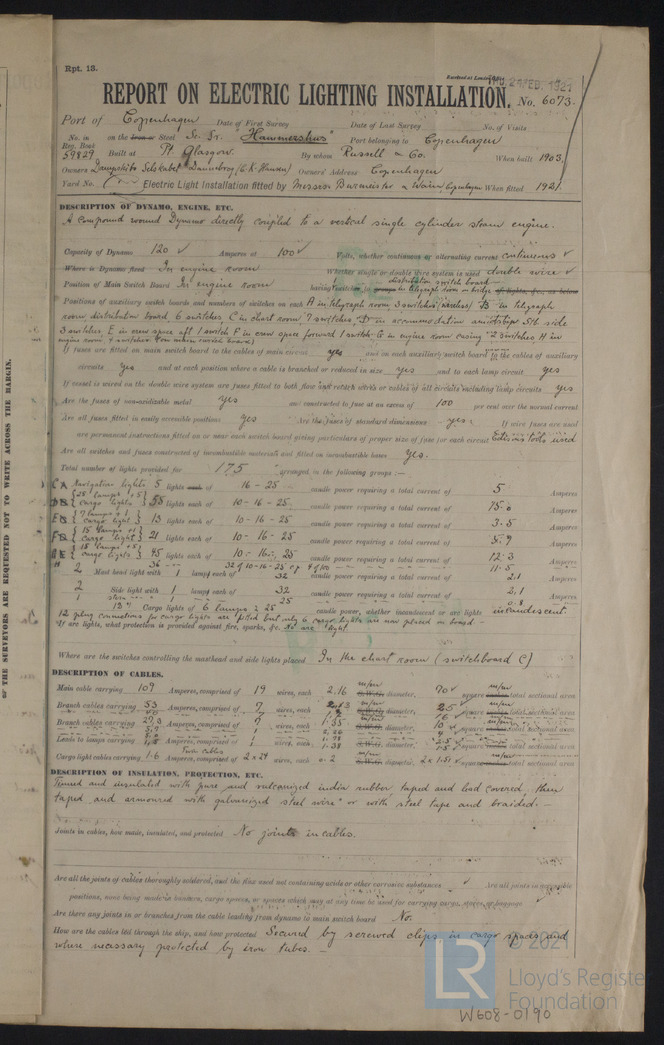 Rpt. 13.
Received at London Office THU. 24 FEB. 1921
REPORT ON ELECTRIC LIGHTING INSTALLATION. No. 6073.
Port of Copenhagen Date of First Survey Date of Last Survey No. of Visits
No. in Reg. Book 59829 on the Iron or Steel Sc. Sr. "Hammershus" Port belonging to Copenhagen
Built at Pt. Glasgow. By whom Russell & Co. When built 1903
Owners Dampskibs Selskabet Dannebrog (C.K. Hansen) Owners' Address Copenhagen
Yard No. Electric Light Installation fitted by Messrs Burmeister & Wain, Copenhagen When fitted 1921.
DESCRIPTION OF DYNAMO, ENGINE, ETC.
A compound wound Dynamo directly coupled to a vertical single cylinder steam engine.
Capacity of Dynamo 120 Amperes at 100 Volts, whether continuous or alternating current continuous
Where is Dynamo fixed In engine room Whether single or double wire system is used double wire
Position of Main Switch Board In engine room having switches to distribution switch board in telegraph room on bridge
Positions of auxiliary switch boards and numbers of switches on each A in telegraph room 3 switches B in telegraph
room distribution board 6 switches C in chart room 7 switches D in accommodation amidships Stb side
3 switches E in crew space aft 1 switch F in crew space forward 1 switch G in engine room casing 2 switches H in
engine room 4 switches
If fuses are fitted on main switch board to the cables of main circuit yes and on each auxiliary switch board to the cables of auxiliary
circuits yes and at each position where a cable is branched or reduced in size yes and to each lamp circuit yes
If vessel is wired on the double wire system are fuses fitted to both flow and return wires or cables of all circuits including lamp circuits yes
Are the fuses of non-oxidizable metal yes and constructed to fuse at an excess of 100 per cent over the normal current
Are all fuses fitted in easily accessible positions yes Are the fuses of standard dimensions yes If wire fuses are used
are permanent instructions fitted on or near each switch board giving particulars of proper size of fuse for each circuit
Are all switches and fuses constructed of incombustible materials and fitted on incombustible bases yes.
Total number of lights provided for 175 arranged in the following groups:—
Navigation lights 5 lights each of 16 - 25 candle power requiring a total current of 5 Amperes
28 lamps + 5 cargo lights 55 lights each of 10 - 16 - 25 candle power requiring a total current of 15.0 Amperes
7 lamps + 1 cargo light 13 lights each of 10 - 16 - 25 candle power requiring a total current of 3.5 Amperes
15 lamps + 1 cargo light 21 lights each of 10 - 16 - 25 candle power requiring a total current of 5.9 Amperes
15 lamps + 5 cargo lights 45 lights each of 10 - 16 - 25 candle power requiring a total current of 12.3 Amperes
H 36 32 of 10-16-25 c.p. 4 of 100 11.5
2 Mast head light with 1 lamp each of 32 candle power requiring a total current of 2.1 Amperes
2 Side light with 1 lamp each of 32 candle power requiring a total current of 2.1 Amperes
1 stern 25
Cargo lights of 6 lamps à 25 candle power, whether incandescent or arc lights incandescent.
12 plug connections for cargo lights are fitted but only 6 cargo lights are now placed on board -
If arc lights, what protection is provided against fire, sparks, &c. No arc light
Where are the switches controlling the masthead and side lights placed In the chart room (switchboard C)
DESCRIPTION OF CABLES.
Main cable carrying 109 Amperes, comprised of 19 wires, each 2.16 m/m diameter, 70 square m/m total sectional area
Branch cables carrying 53 Amperes, comprised of 7 wires, each 2.13 m/m diameter, 25 square m/m total sectional area
Branch cables carrying 27.3 Amperes, comprised of 7 wires, each 1.35 diameter, 10 square total sectional area
Leads to lamps carrying Amperes, comprised of 1 wires, each 1.38 diameter, 1.5 square total sectional area
Cargo light cables carrying 1.6 Amperes, comprised of 2 x 24 wires, each 0.2 diameter, 2 x 1.51 square total sectional area
DESCRIPTION OF INSULATION, PROTECTION, ETC.
Tinned and insulated with pure and vulcanized india rubber, taped and lead covered, then
taped and armoured with galvanized steel wire or with steel tape and braided. -
Joints in cables, how made, insulated, and protected No joints in cables.
Are all the joints of cables thoroughly soldered, and the flux used not containing acids or other corrosive substances Are all joints in accessible
positions, none being made in bunkers, cargo spaces, or spaces which may at any time be used for carrying cargo, stores, or baggage
Are there any joints in or branches from the cable leading from dynamo to main switch board No.
How are the cables led through the ship, and how protected Secured by screwed clips in cargo spaces and
where necessary protected by iron tubes. -
OF THE SURVEYORS ARE REQUESTED NOT TO WRITE ACROSS THE MARGIN.
LR
© 2021
Lloyd's Register
Foundation
W608-0190